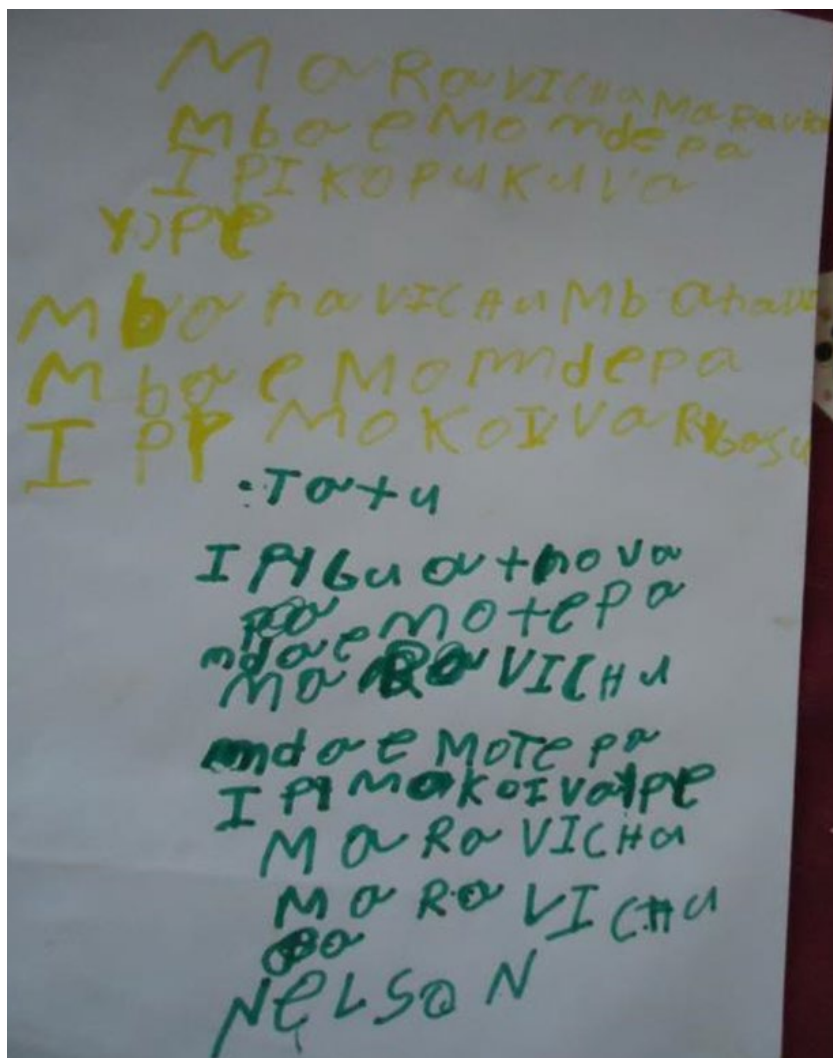 MaRaVICHa MaRaVIC
Mba e Mo mdepa
I PI KOPUKUVa
YOPE
Mba ha VICHu Mb aha VI
Mba e Mo mdepa
I PP MOKOIVa R
:Tatu
I PI bu at hova
pa Motepa
mda e
Ma Ra VICHu
mda e MOTE pa
I PI MaKOIVa IPE
Ma Ra VICHu
Ma Ra VICHu
NELSON